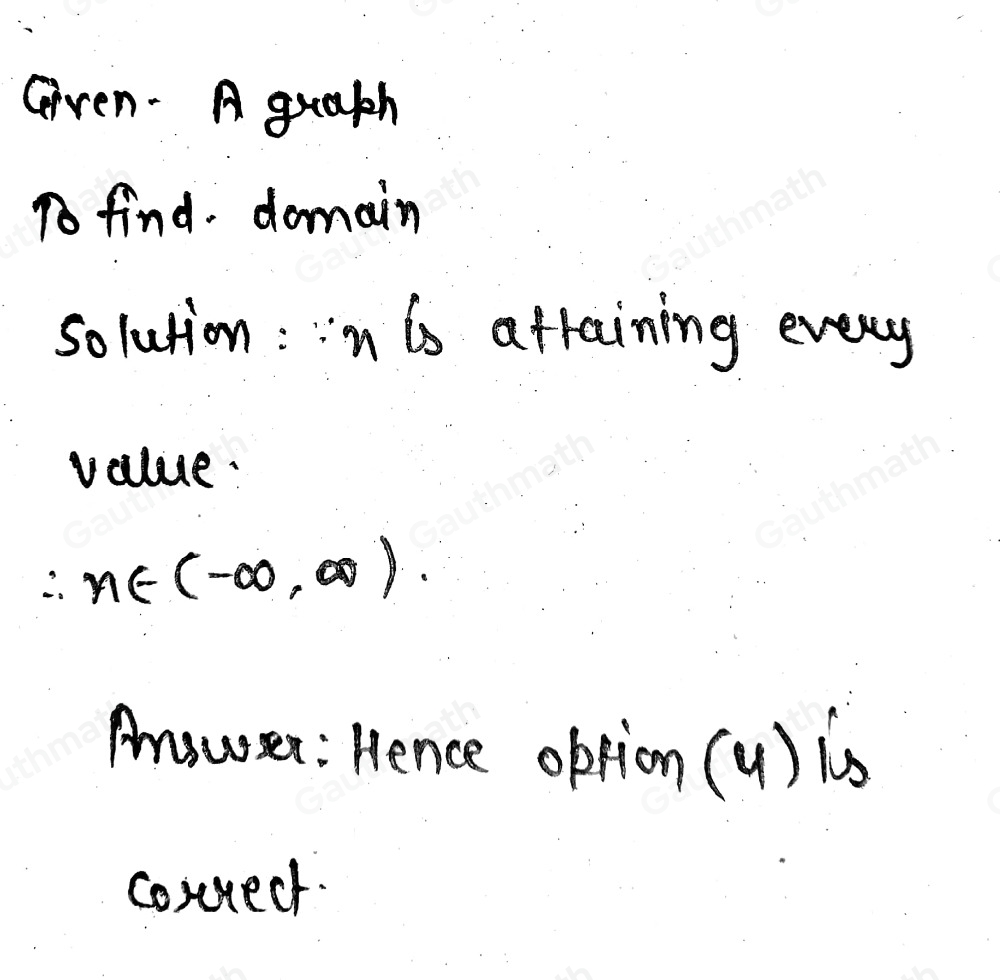 Given. A graph
To find. domain
Solution : ∵ x is attaining every
value.
∴ x ∈ (-∞, ∞).
Answer: Hence option (4) is
correct.
Gauthmath